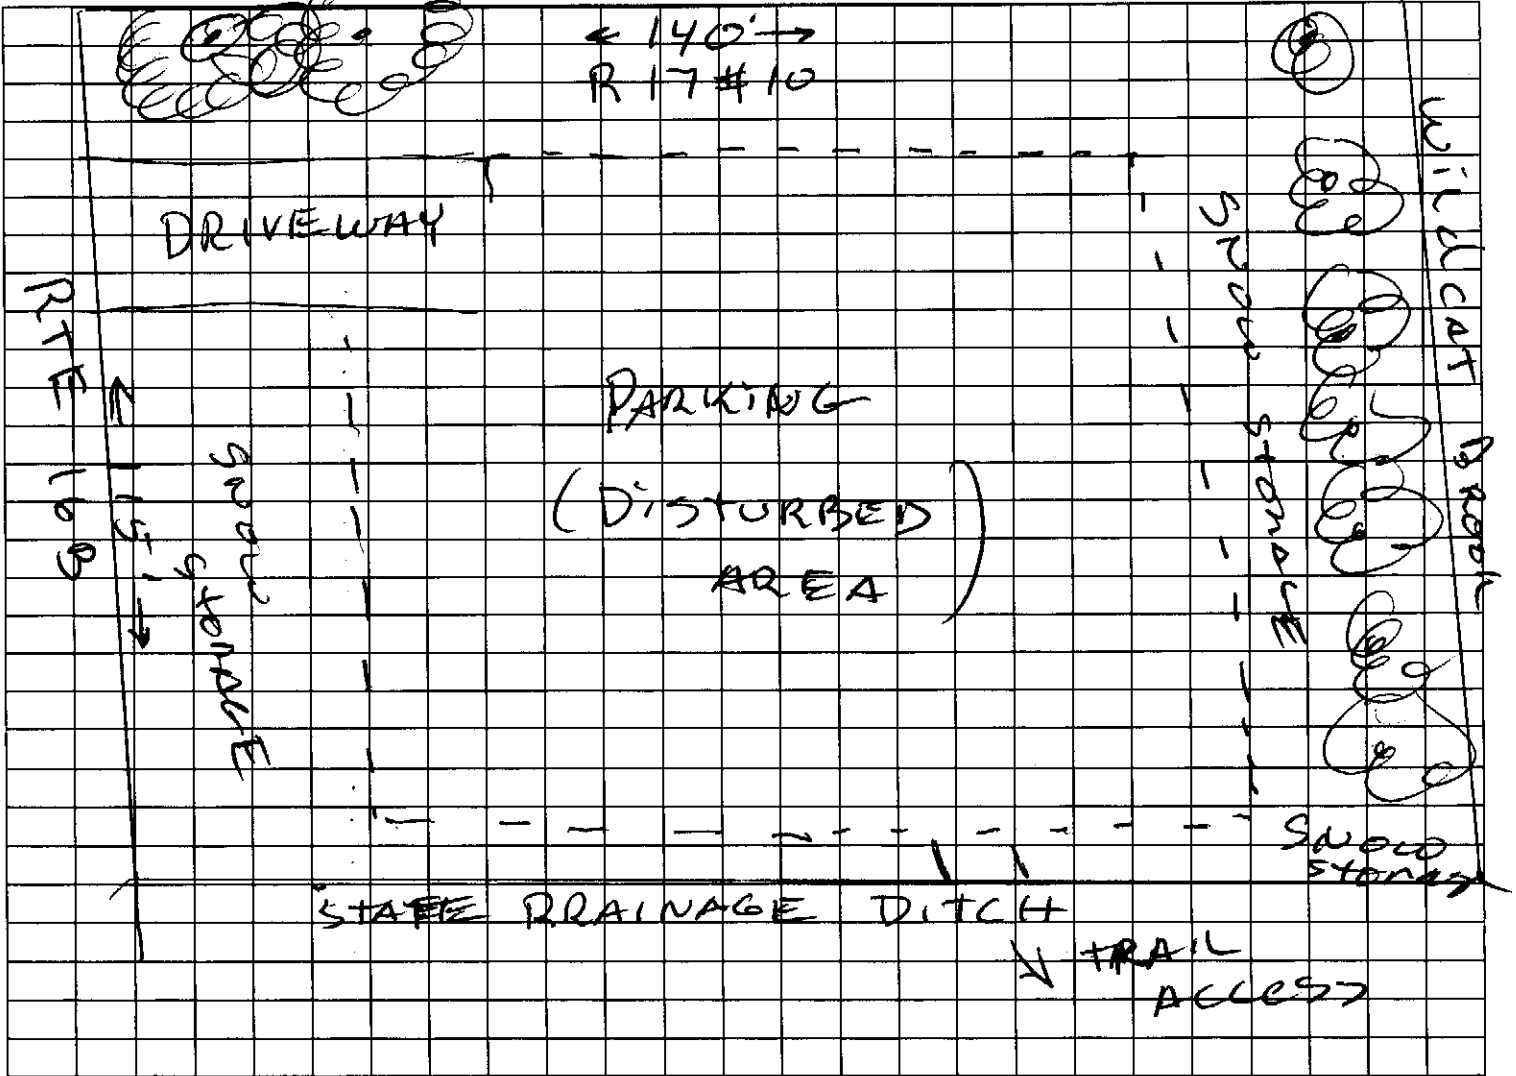 ← 140' →
R 17 # 10
DRIVEWAY
RTE 16B
← 115' →
SNOW STORAGE
PARKING
(DISTURBED
AREA)
SNOW STORAGE
WILDCAT BROOK
SNOW
STORAGE
STATE DRAINAGE DITCH
↘ TRAIL
ACCESS